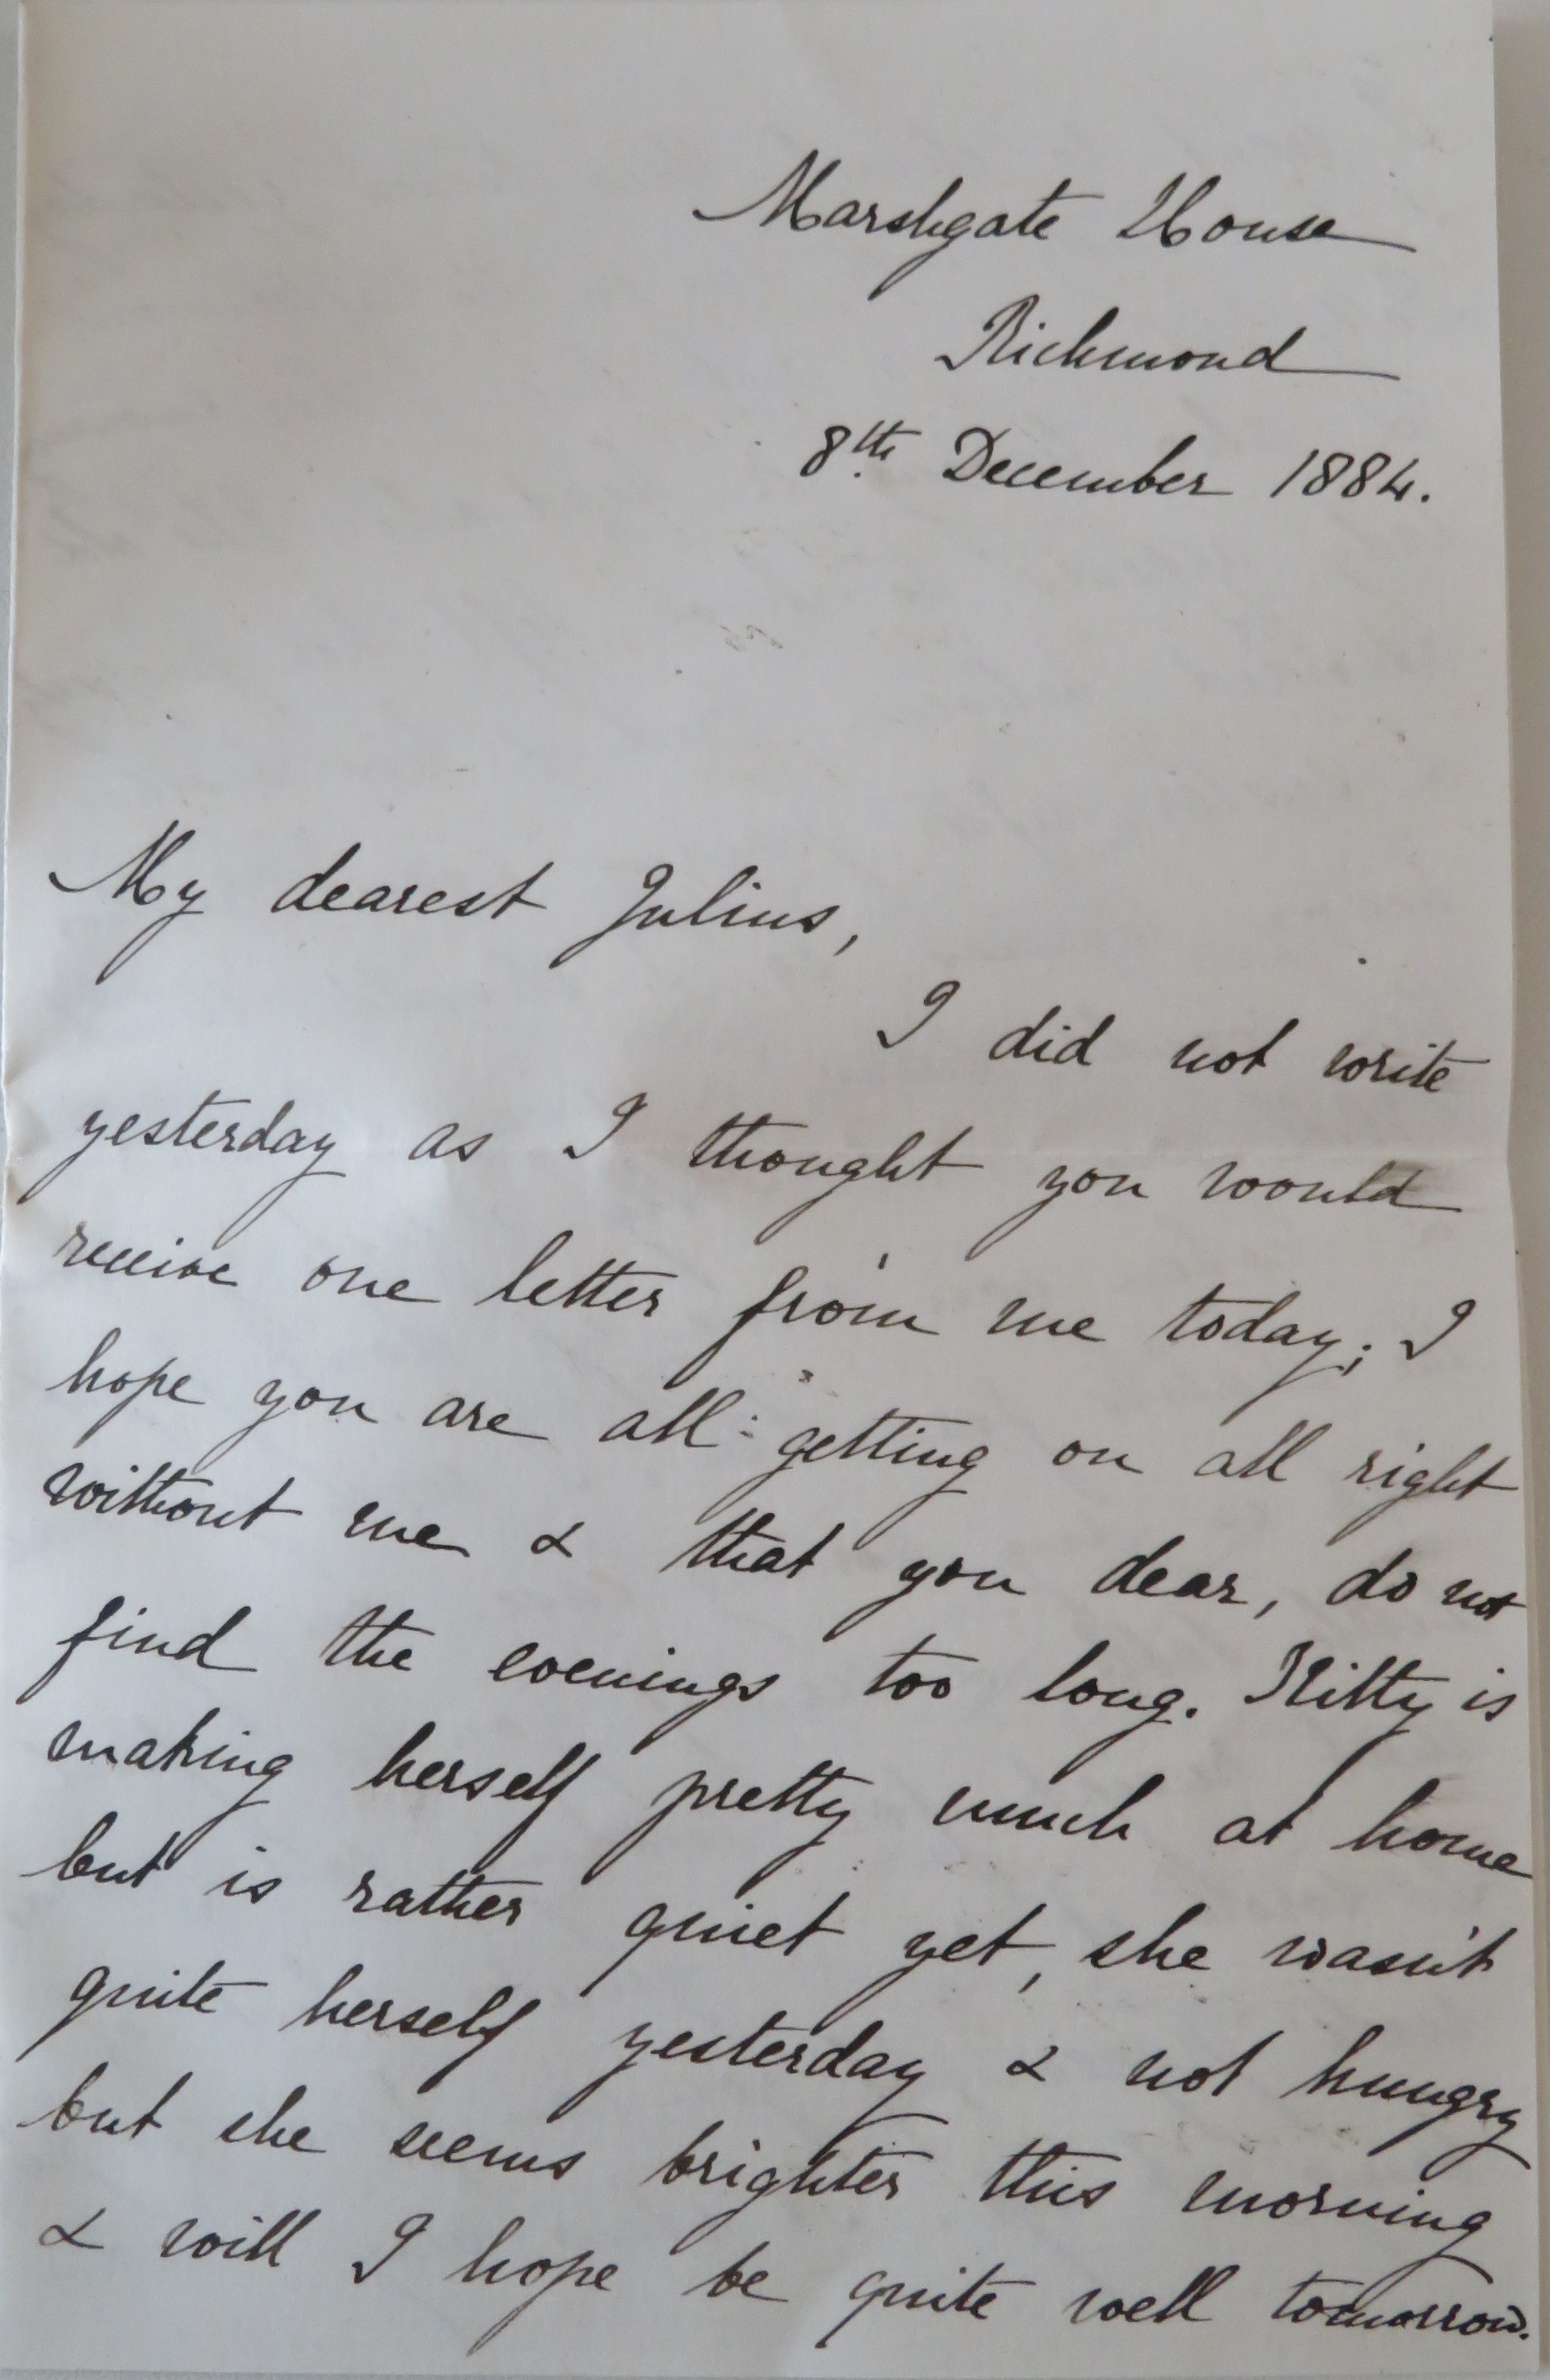 Marshgate House
Richmond
8th December 1884.
My dearest Julius,
I did not write
yesterday as I thought you would
receive one letter from me today; I
hope you are all getting on all right
without me & that you dear, do not
find the evenings too long. Kitty is
making herself pretty much at home
but is rather quiet yet, she wasn't
quite herself yesterday & not hungry
but she seems brighter this morning
& will I hope be quite well tomorrow.